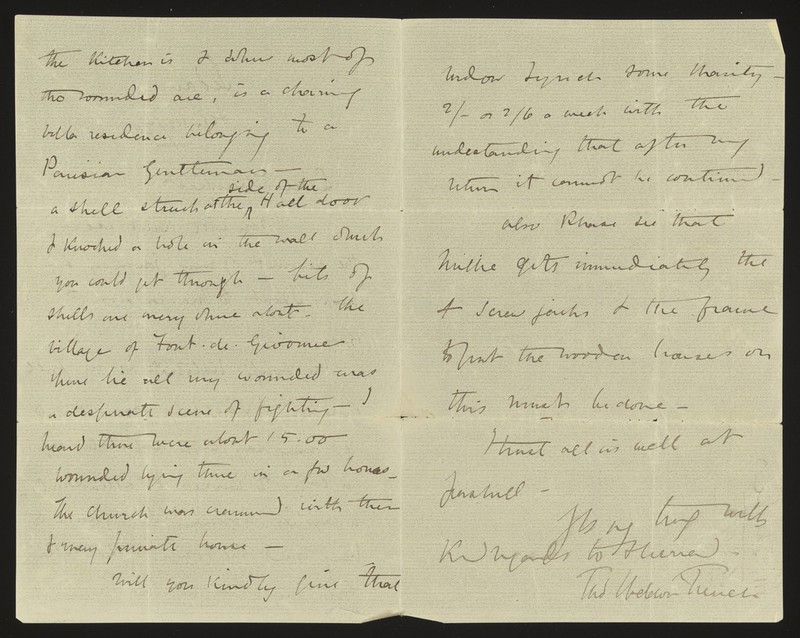 the Kitchen is & where most of
the wounded are, is a charming
villa residence belonging to a
Parisian Gentleman —
a shell struck at the side of the Hall door
& Knocked a hole in the wall which
you could get through — bits of
shells are every where about. The
village of
where lie all my wounded was
a desperate scene of fighting — I
heard there were about 15.00
wounded lying there in a few houses —
The church was crammed with them
& every private house —
Will you Kindly give that
widow Lynch some charity —
2/- or 2/6 a week with the
understanding that after my
return it cannot be continued —
also Please see that
gets immediately the
4 Screw jacks & the frame
to put the wooden houses on
this must be done —
I trust all is well at
—
Yrs very truly with
Kind regards to
Thos